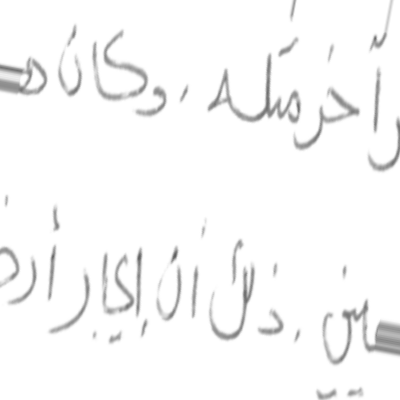 را خر مثله ، وكان ه
ين . ذلك أن إيجار أرض